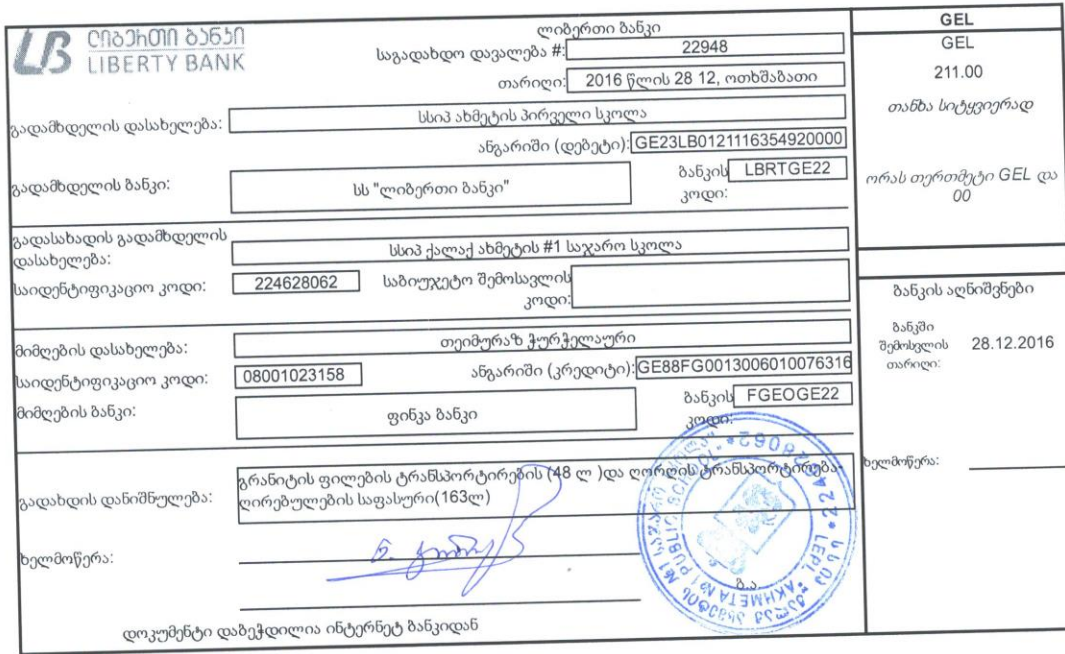 ლიბერთი ბანკი
LIBERTY BANK
ლიბერთი ბანკი
საგადახდო დავალება #: 22948
თარიღი: 2016 წლის 28 12, ოთხშაბათი
გადამხდელის დასახელება: სსიპ ახმეტის პირველი სკოლა
ანგარიში (დებეტი): GE23LB0121116354920000
გადამხდელის ბანკი: სს "ლიბერთი ბანკი" ბანკის კოდი: LBRTGE22
გადასახადის გადამხდელის
დასახელება: სსიპ ქალაქ ახმეტის #1 საჯარო სკოლა
საიდენტიფიკაციო კოდი: 224628062 საბიუჯეტო შემოსავლის
კოდი:
მიმღების დასახელება: თეიმურაზ ჭურჭელაური
საიდენტიფიკაციო კოდი: 08001023158 ანგარიში (კრედიტი): GE88FG0013006010076316
მიმღების ბანკი: ფინკა ბანკი ბანკის კოდი: FGEOGE22
გადახდის დანიშნულება: გრანიტის ფილების ტრანსპორტირების (48 ლ )და ღორღის ტრანსპორტირება-
ღირებულების საფასური(163ლ)
ხელმოწერა:
ბ.ა.
დოკუმენტი დაბეჭდილია ინტერნეტ ბანკიდან
GEL
GEL
211.00
თანხა სიტყვიერად
ორას თერთმეტი GEL და
00
ბანკის აღნიშვნები
ბანკში
შემოსვლის 28.12.2016
თარიღი:
ხელმოწერა:
LEPL "AKHMETA №1 PUBLIC SCHOOL"